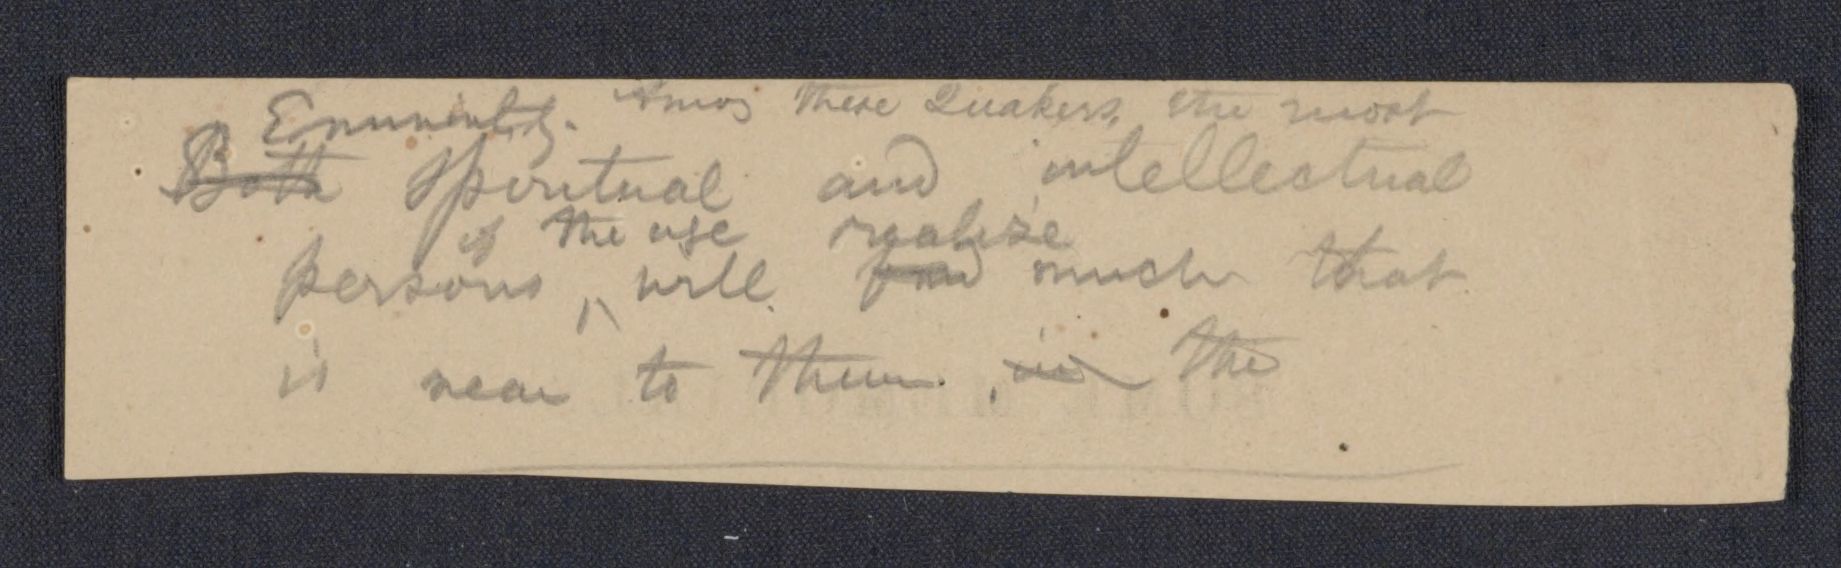 Eminently. Among these Quakers, the most
Both spiritual and intellectual
of the age realize
persons, will find much that
is near to them. in the